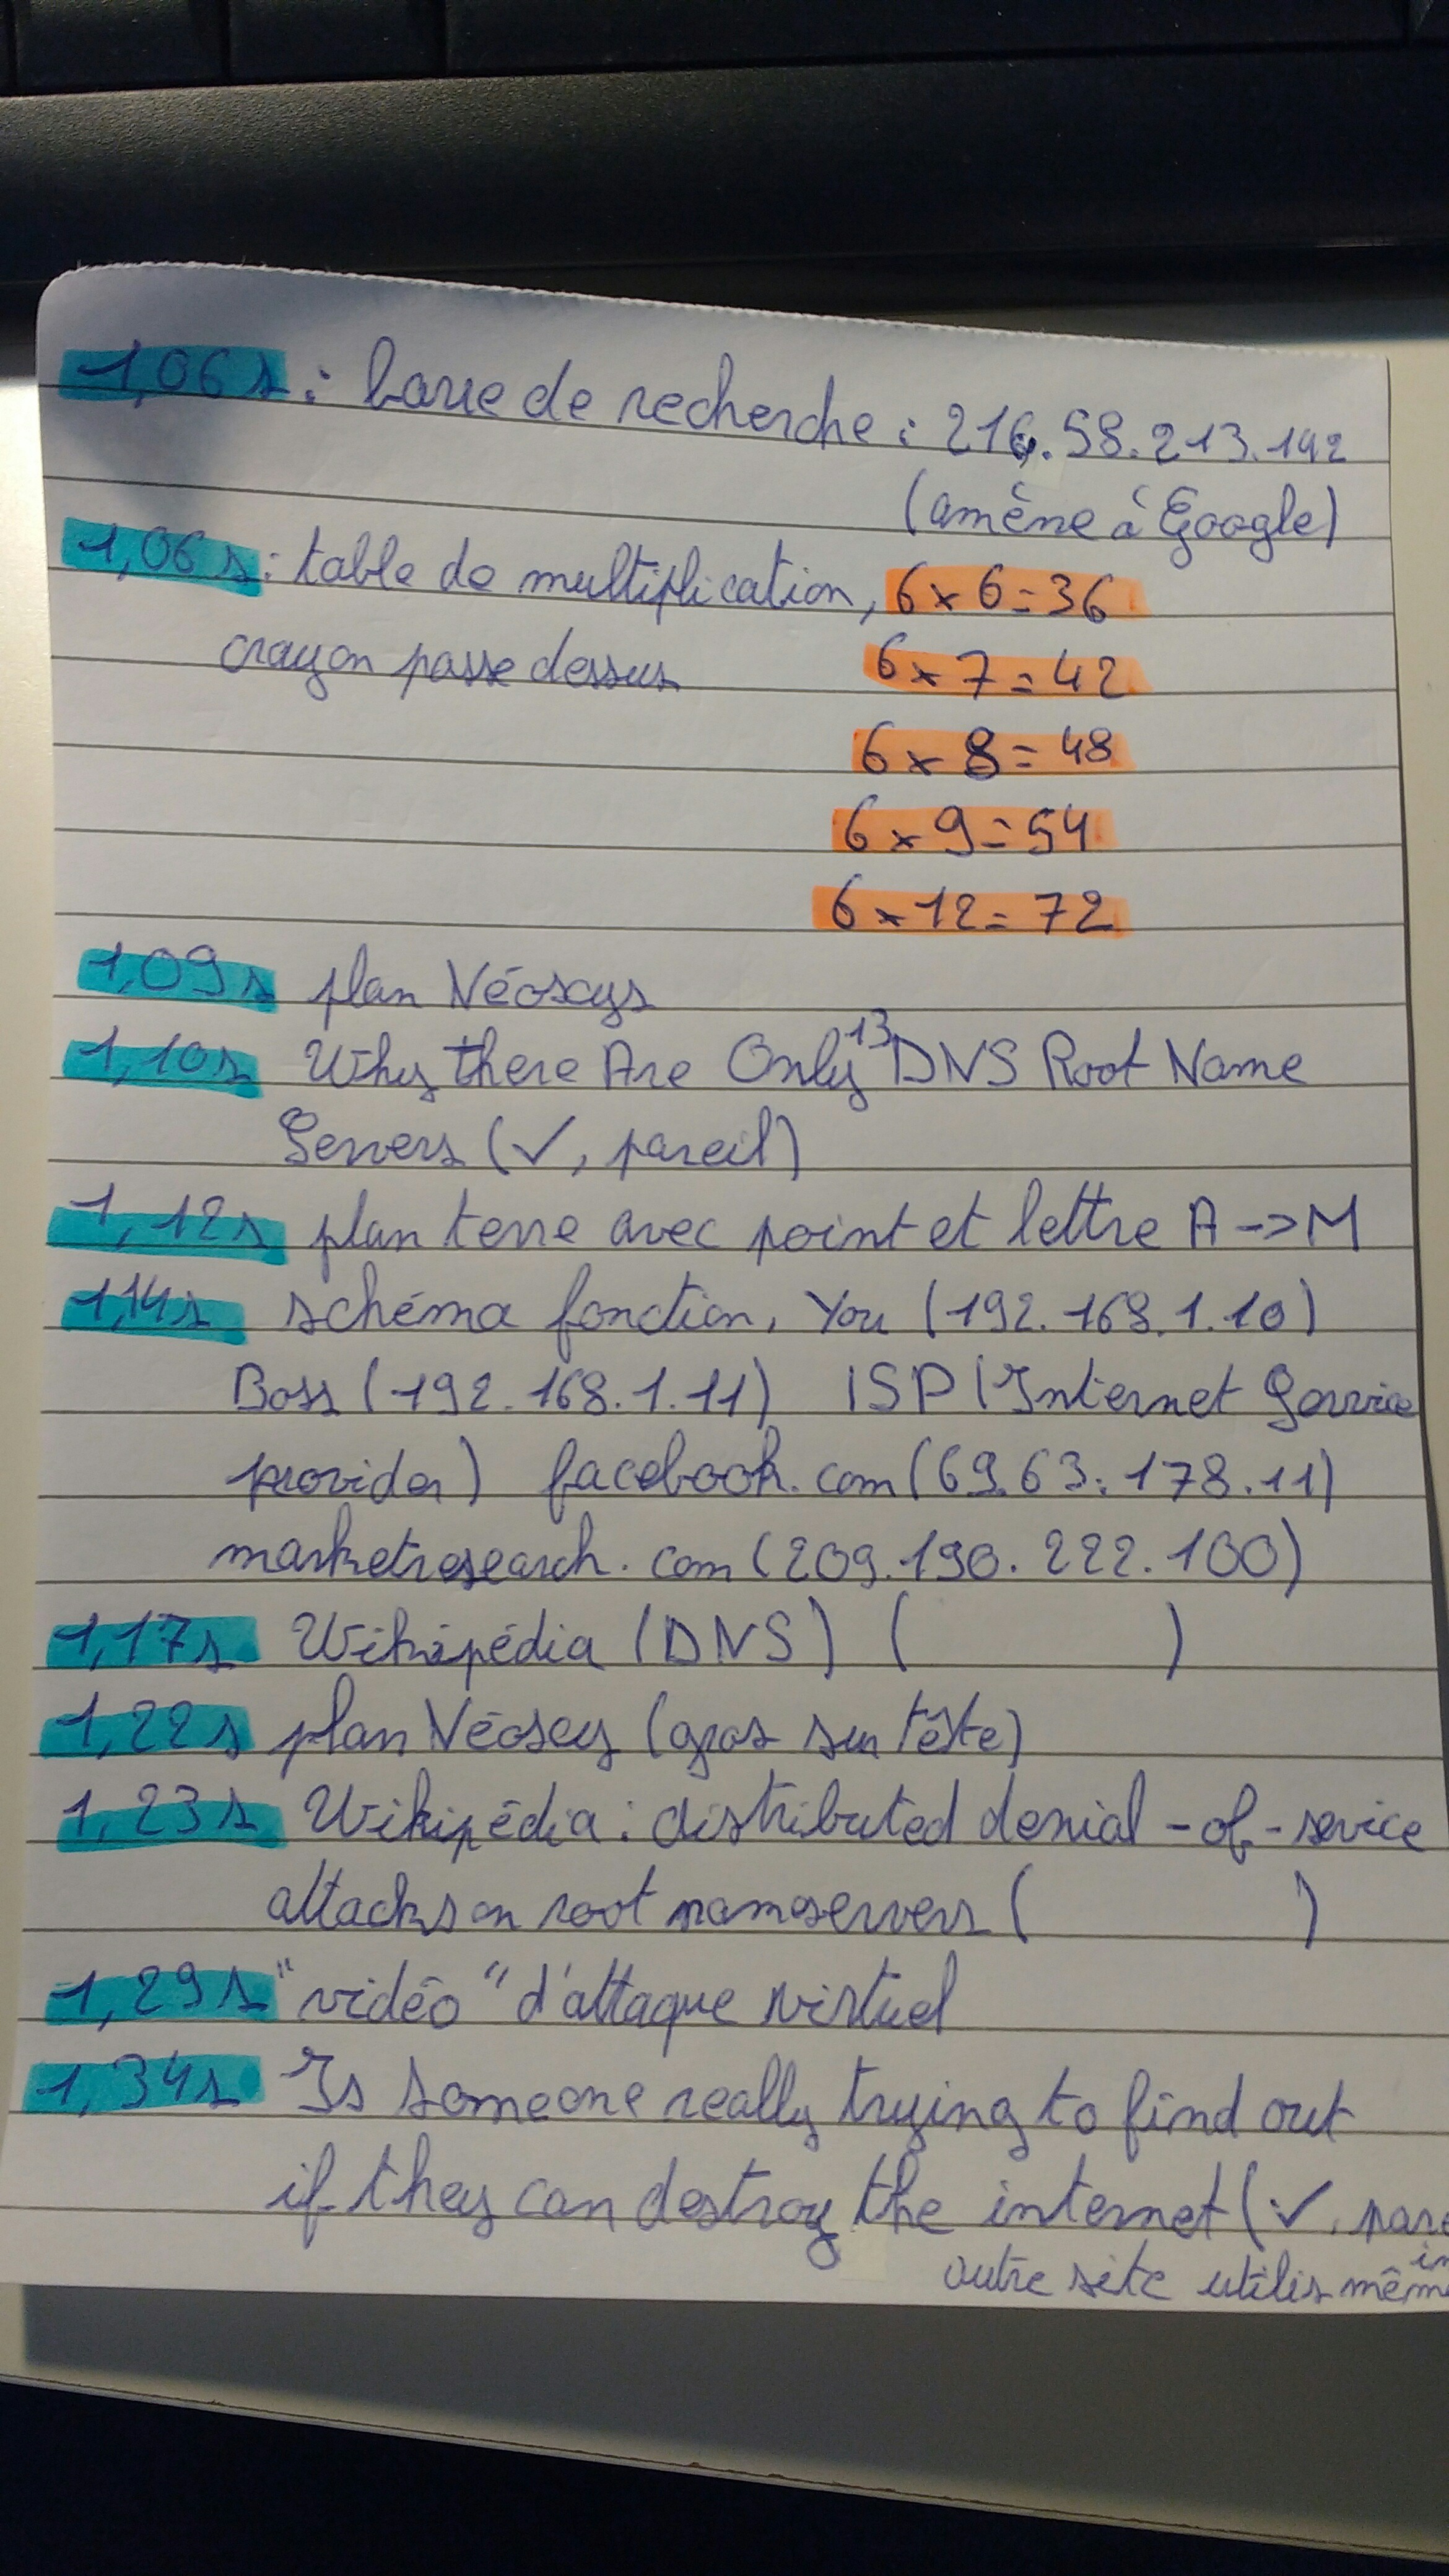 1,06s : barre de recherche : 216.58.213.142
(amène à Google)
1,06s : table de multiplication, 6 x 6 = 36
crayon passe dessus 6 x 7 = 42
6 x 8 = 48
6 x 9 = 54
6 x 12 = 72
1,09s plan Néoscys
1,10s Why there Are Only 13 DNS Root Name
Servers (✓, pareil)
1,12s plan terre avec point et lettre A -> M
1,14s schéma fonction, You (192.168.1.10)
Boss (192.168.1.11) ISP (Internet Service
provider) facebook.com (69.63.178.11)
marketresearch.com (209.190.222.100)
1,17s Wikipédia (DNS) ( )
1,22s plan Néoscy (gros sur tête)
1,23s Wikipédia : distributed denial-of-service
attacks on root nameservers ( )
1,29s "vidéo" d'attaque virtuel
1,34s Is someone really trying to find out
if they can destroy the internet (✓, pare
autre site utilis mêm